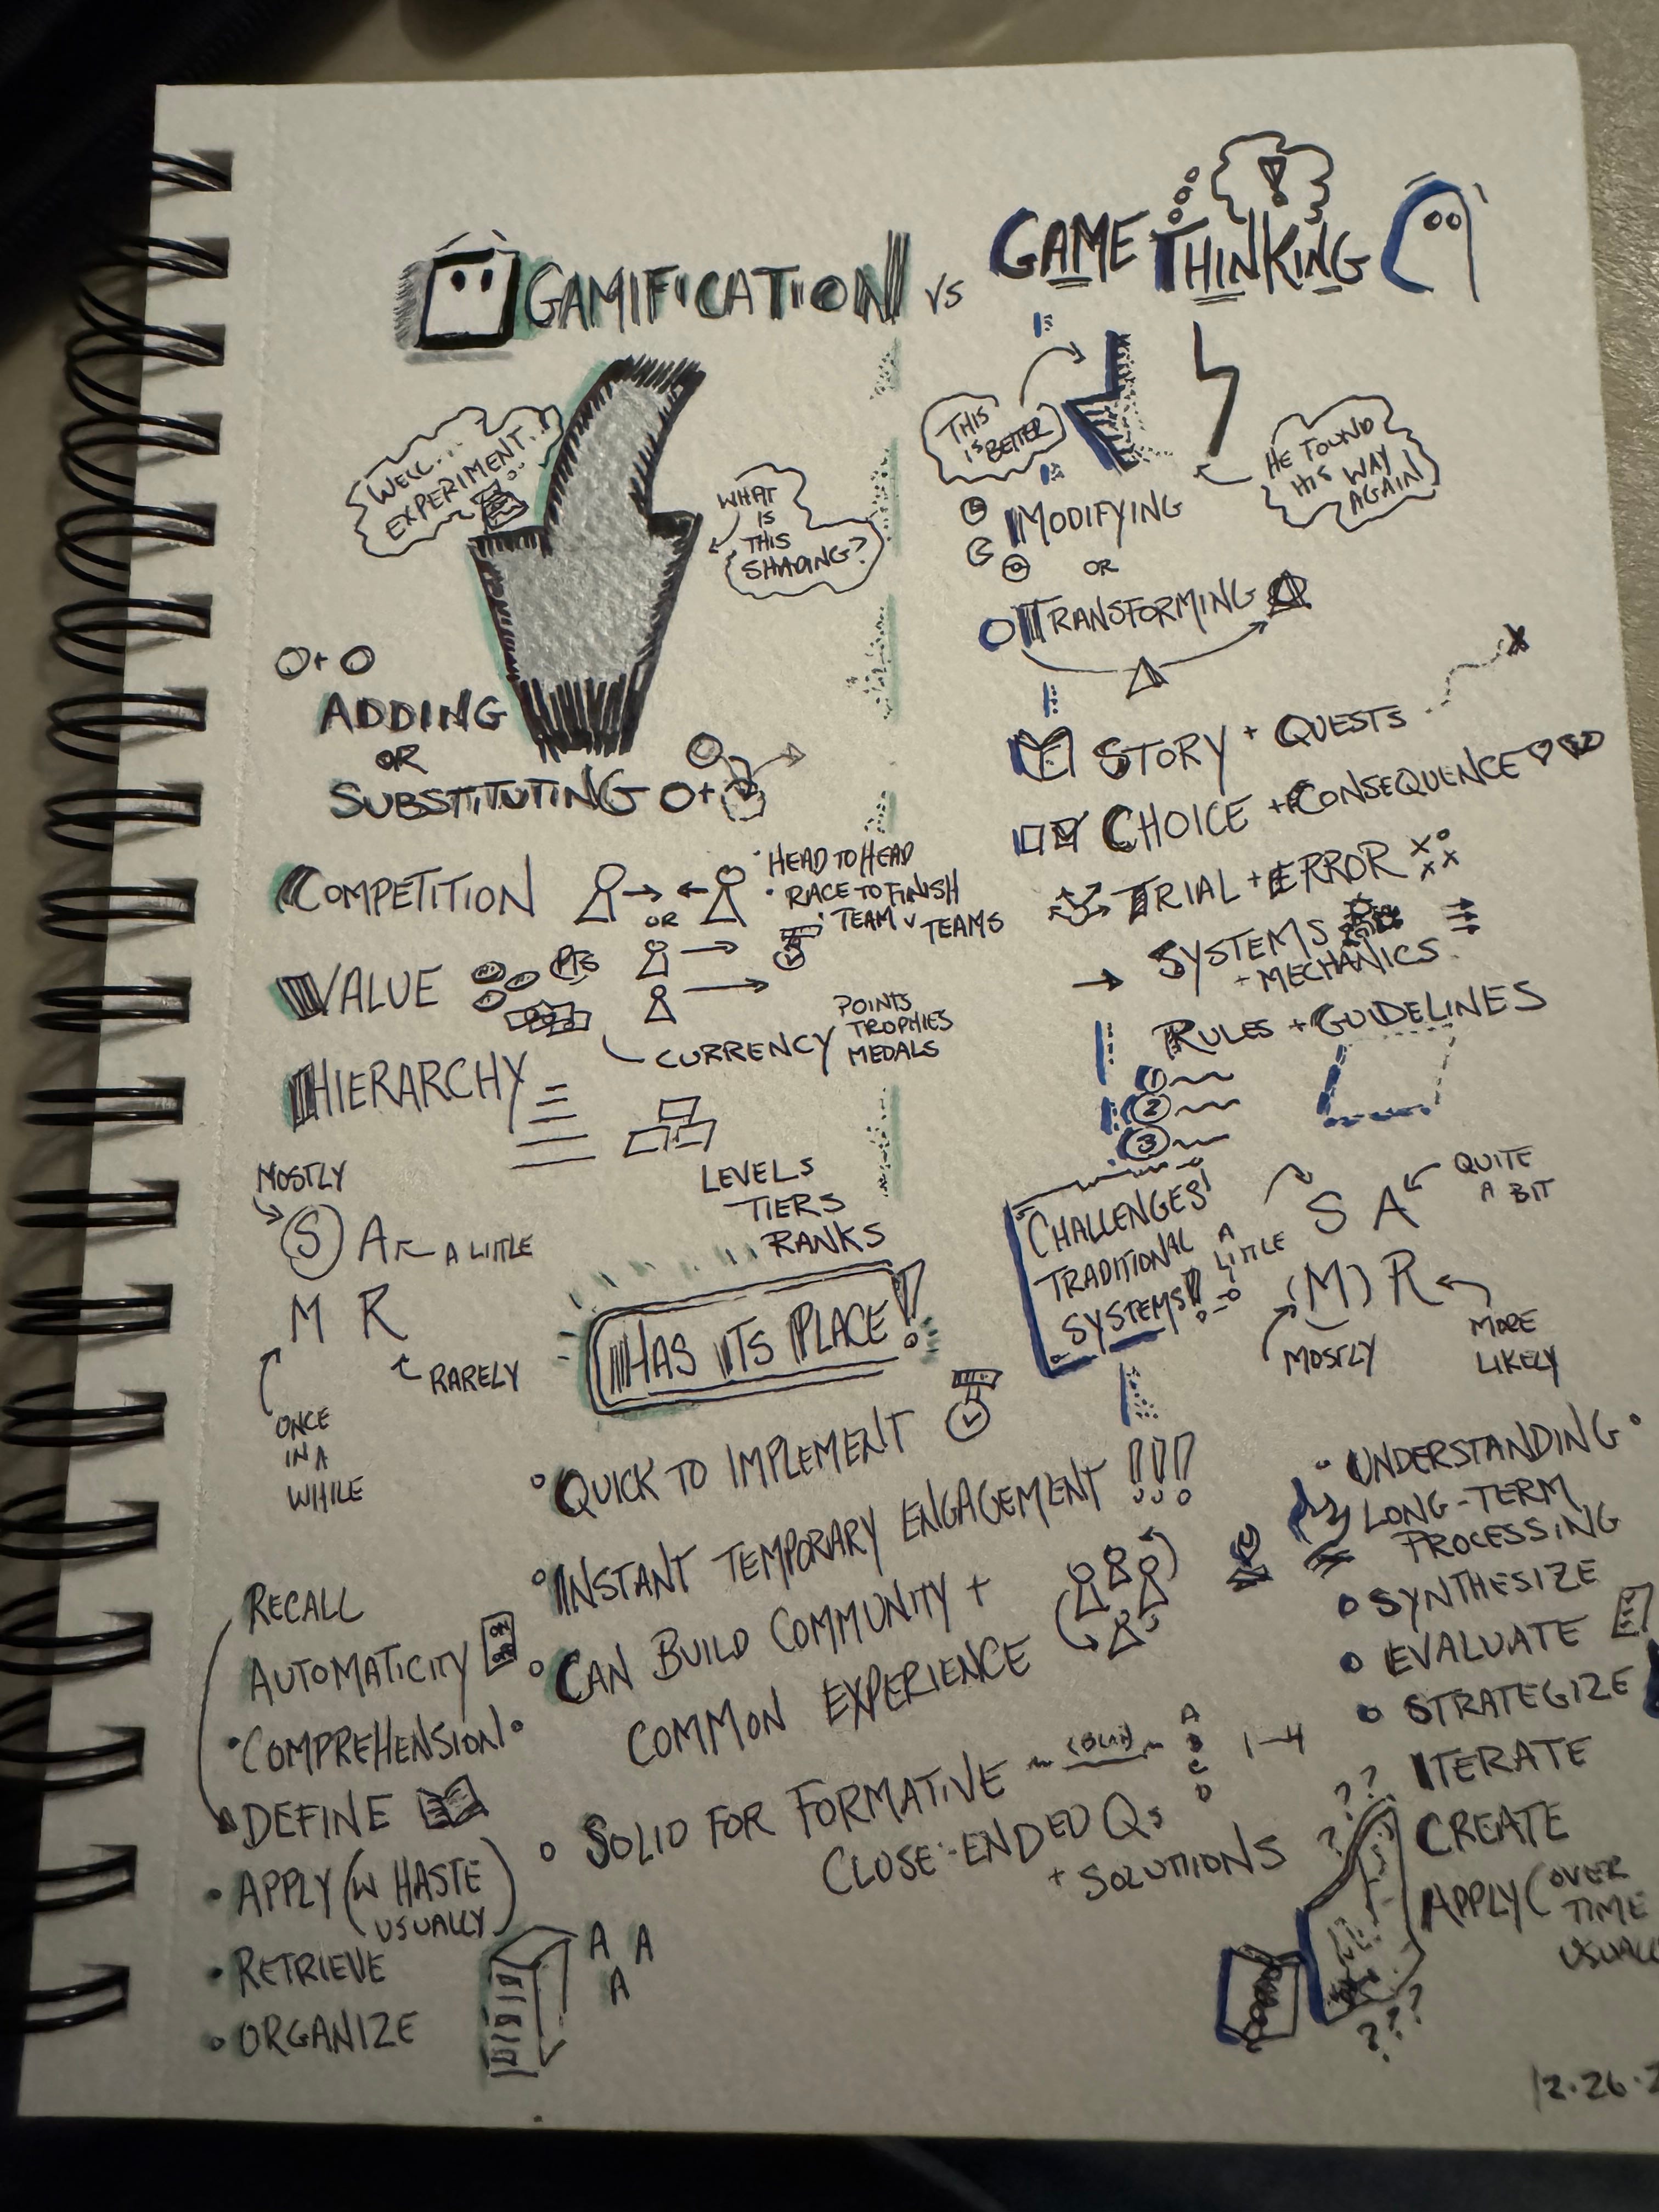 GAMIFICATION VS GAME THINKING
WELL...
EXPERIMENT...
WHAT
IS
THIS
SHADING?
ADDING
OR
SUBSTITUTING
COMPETITION
OR
• HEAD TO HEAD
• RACE TO FINISH
• TEAM V TEAMS
VALUE
PTS
CURRENCY
POINTS
TROPHIES
MEDALS
HIERARCHY
LEVELS
TIERS
RANKS
MOSTLY
S A A LITTLE
M R
RARELY
ONCE
IN A
WHILE
HAS ITS PLACE!
° QUICK TO IMPLEMENT
° INSTANT TEMPORARY ENGAGEMENT !!!
° CAN BUILD COMMUNITY +
COMMON EXPERIENCE
° SOLID FOR FORMATIVE
A
B
C
D
1-4
CLOSE-ENDED Qs
+ SOLUTIONS
RECALL
AUTOMATICITY
ON
OFF
• COMPREHENSION •
DEFINE
• APPLY (W HASTE
USUALLY)
• RETRIEVE
• ORGANIZE
A A
A
THIS
IS BETTER
HE FOUND
HIS WAY
AGAIN!
MODIFYING
OR
TRANSFORMING
STORY + QUESTS
CHOICE + CONSEQUENCE
TRIAL + ERROR
SYSTEMS
+ MECHANICS
RULES + GUIDELINES
1
2
3
CHALLENGES
TRADITIONAL
SYSTEMS!!
A
LITTLE
S A
QUITE
A BIT
(M) R
MOSTLY
MORE
LIKELY
• UNDERSTANDING •
LONG-TERM
PROCESSING
• SYNTHESIZE
• EVALUATE
• STRATEGIZE
ITERATE
CREATE
APPLY (OVER
TIME
? ? ?
???
12.26.